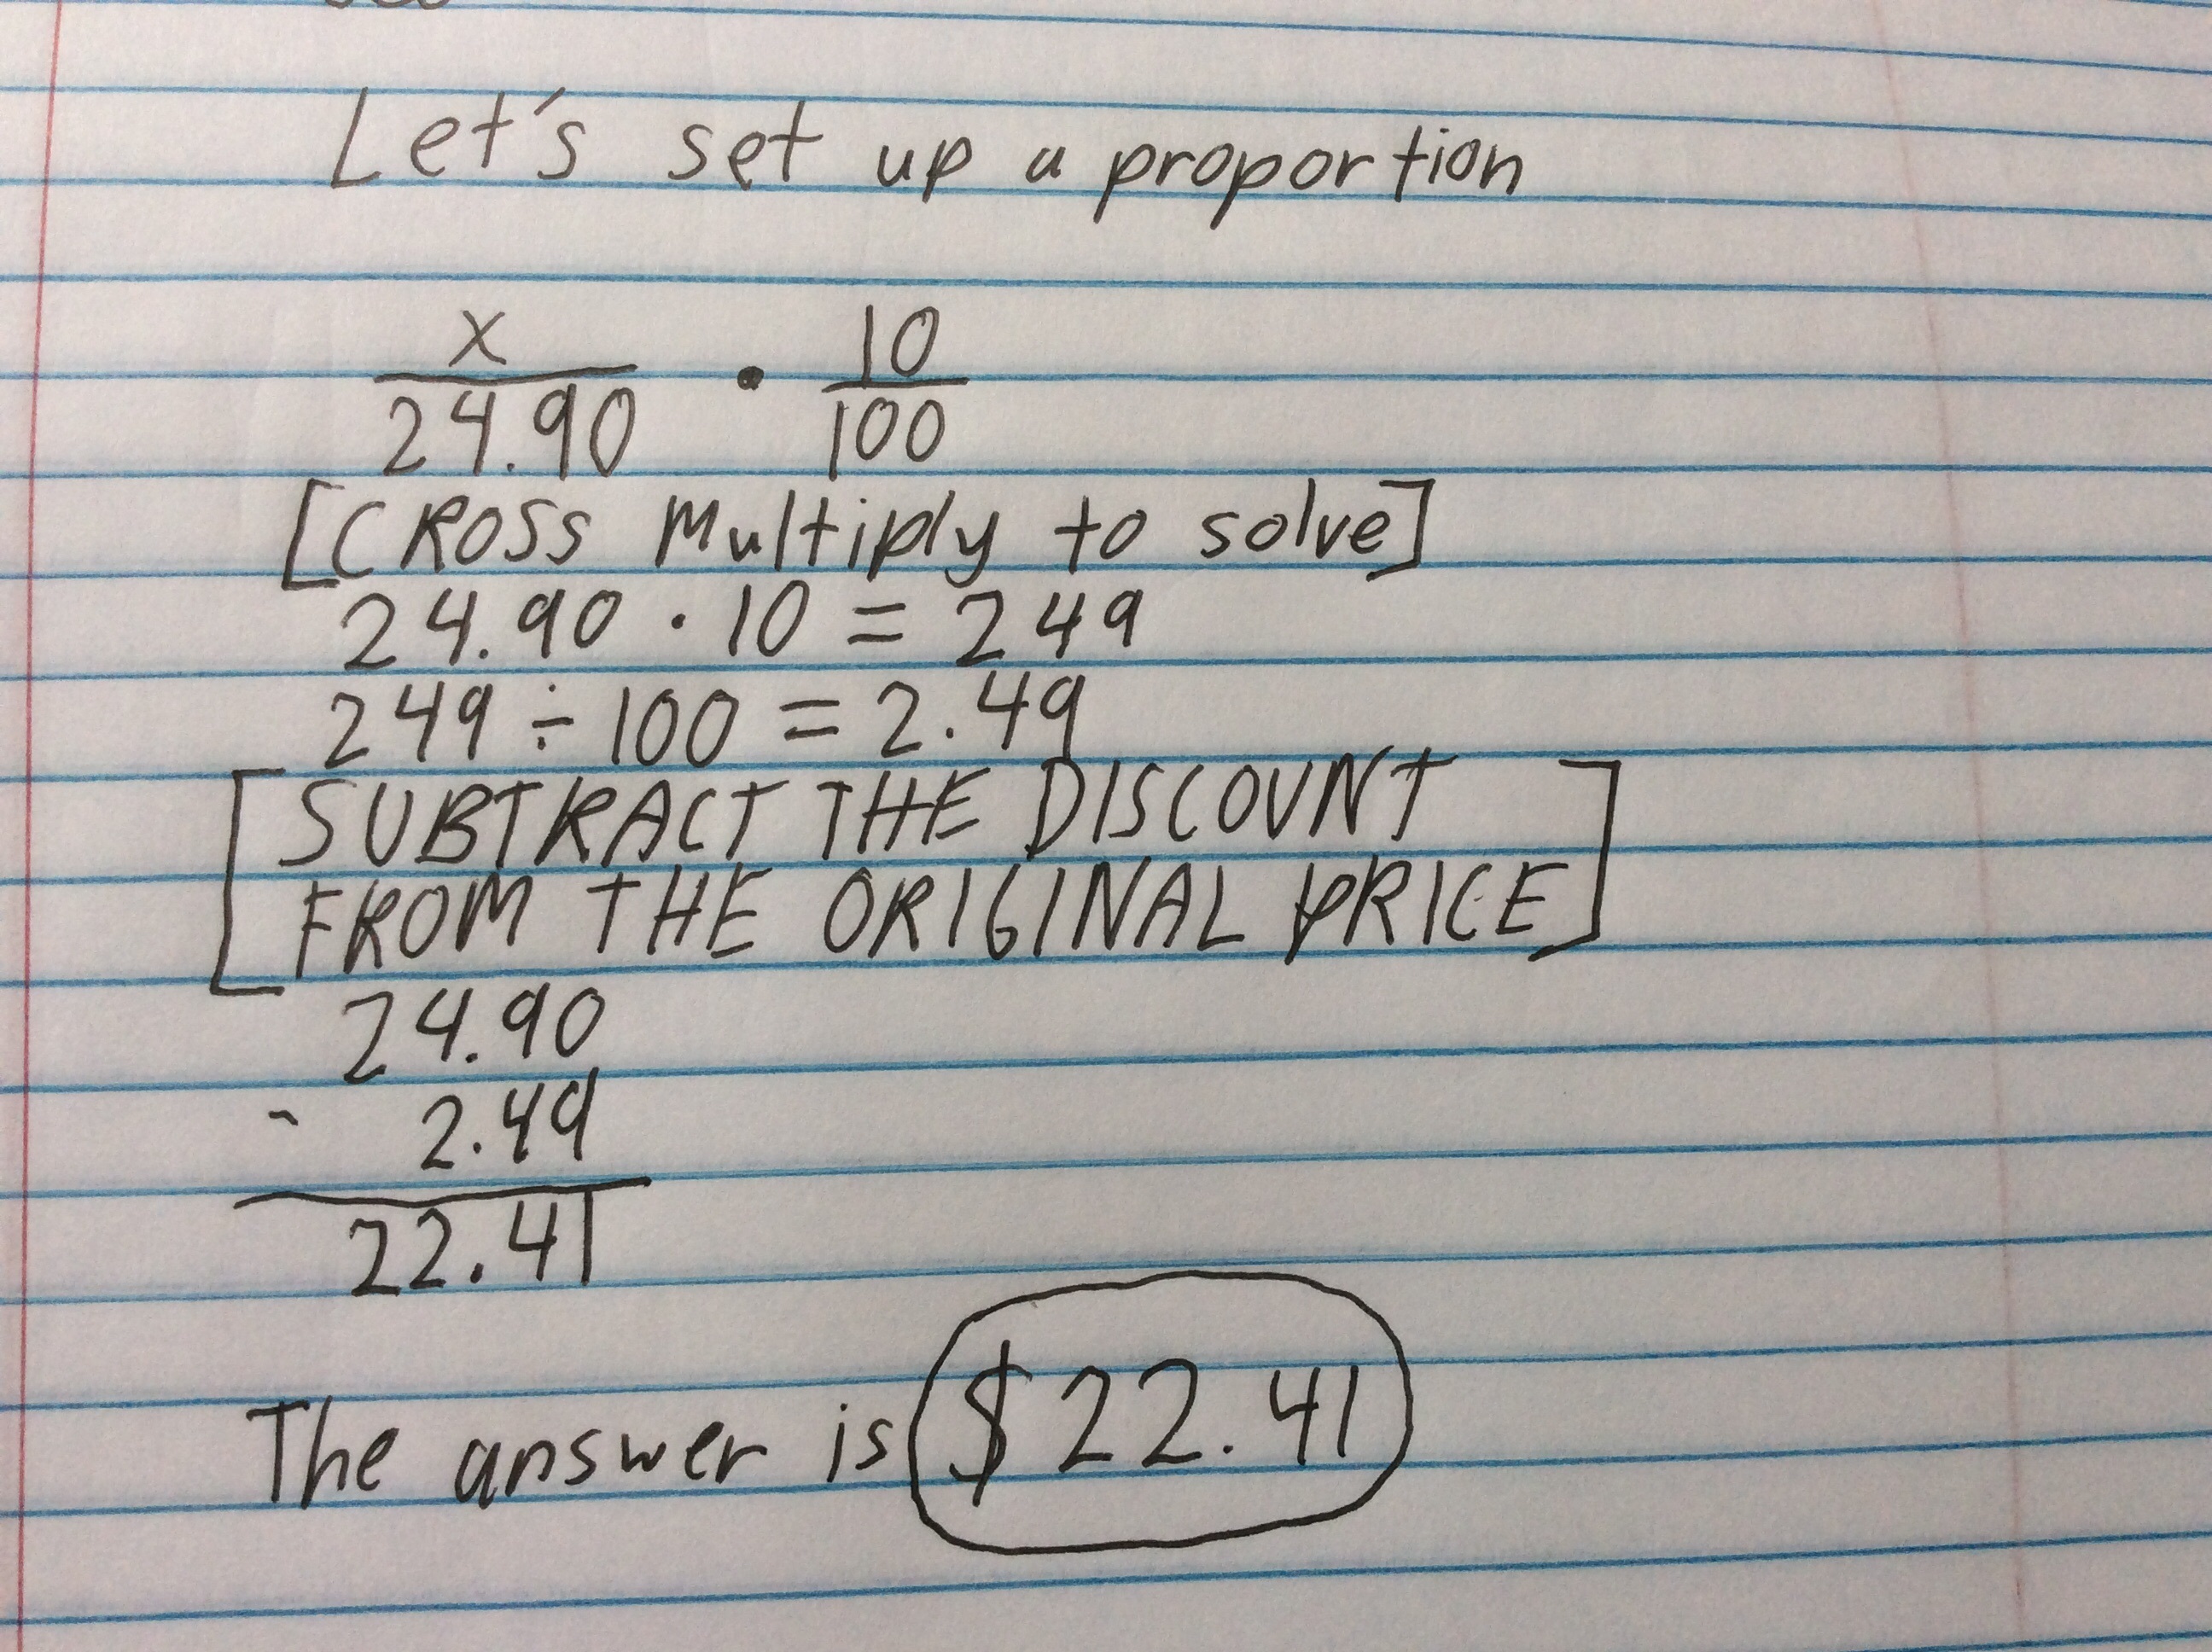 Let's set up a proportion
x/24.90 • 10/100
[CROSS Multiply to solve]
24.90 · 10 = 249
249 ÷ 100 = 2.49
[SUBTRACT THE DISCOUNT
FROM THE ORIGINAL PRICE]
24.90
- 2.49
22.41
The answer is $22.41